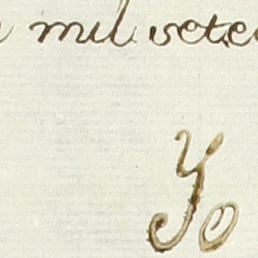 mil sete
Yo